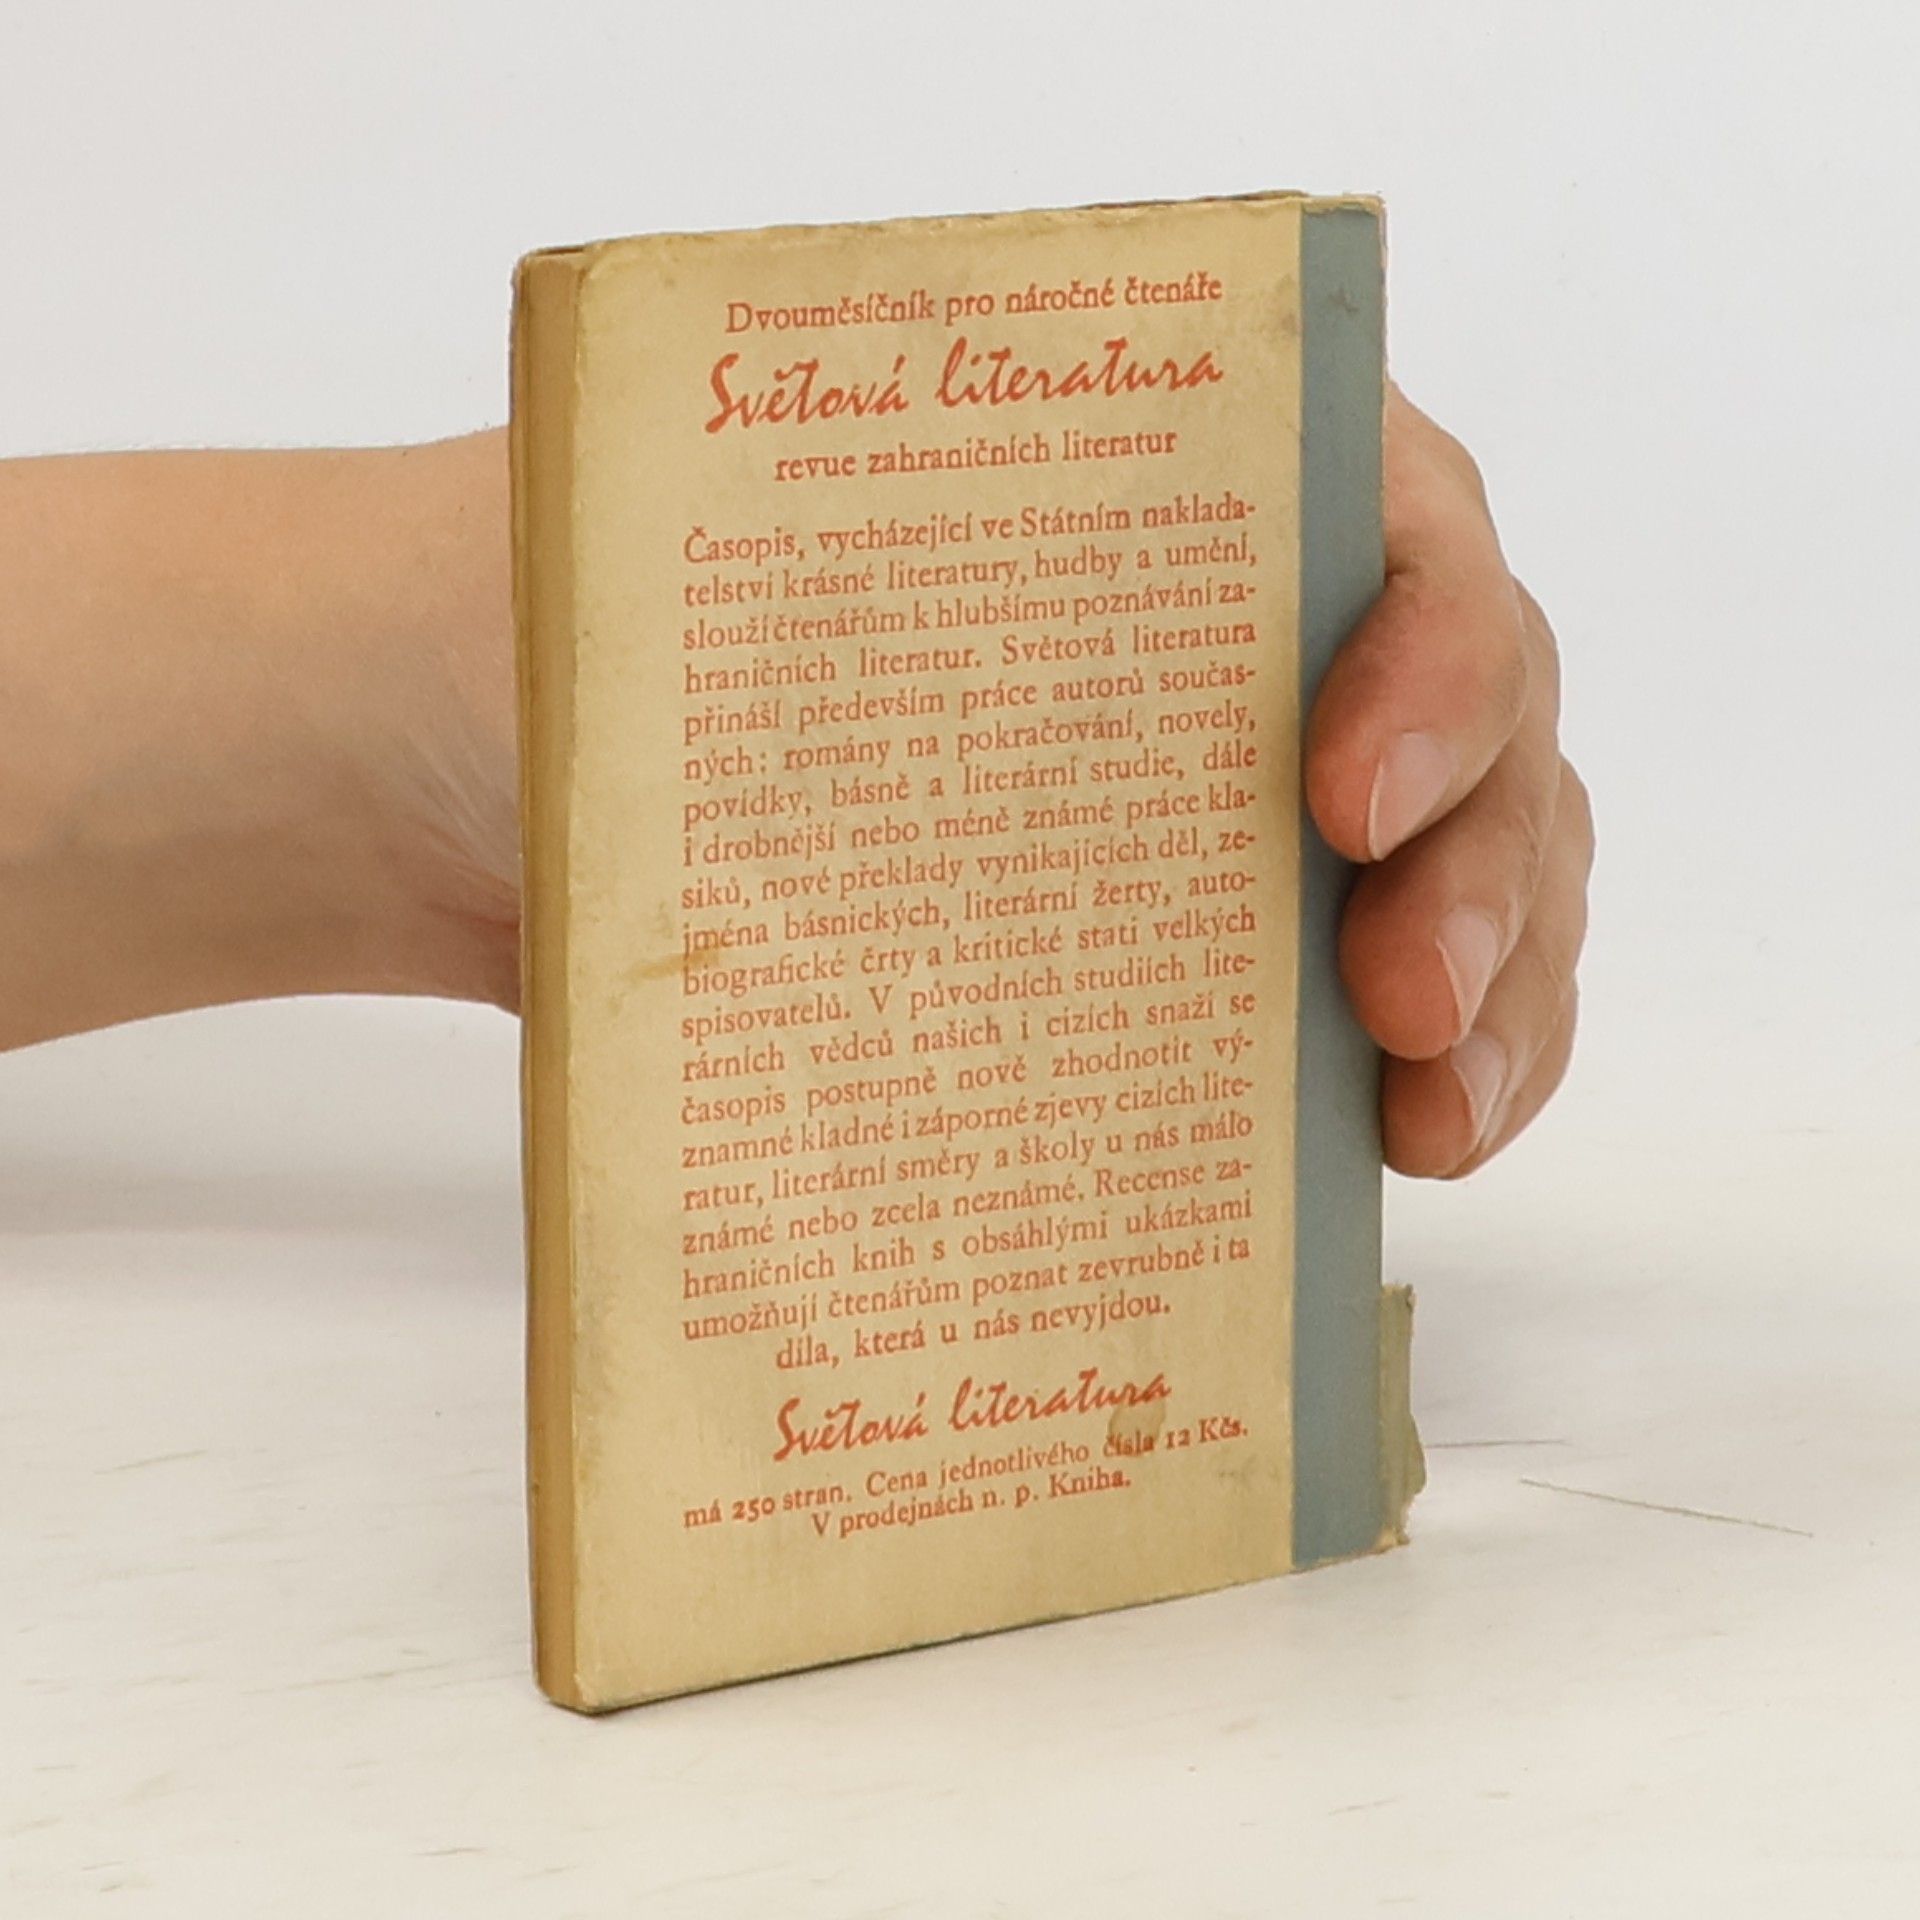 Dvouměsíčník pro náročné čtenáře
Světová literatura
revue zahraničních literatur
Časopis, vycházející ve Státním naklada-
telství krásné literatury, hudby a umění,
slouží čtenářům k hlubšímu poznávání za-
hraničních literatur. Světová literatura
přináší především práce autorů součas-
ných: romány na pokračování, novely,
povídky, básně a literární studie, dále
i drobnější nebo méně známé práce kla-
siků, nové překlady vynikajících děl, ze-
jména básnických, literární žerty, auto-
biografické črty a kritické stati velkých
spisovatelů. V původních studiích lite-
rárních vědců našich i cizích snaží se
časopis postupně nově zhodnotit vý-
znamné kladné i záporné zjevy cizích lite-
ratur, literární směry a školy u nás málo
známé nebo zcela neznámé. Recense za-
hraničních knih s obsáhlými ukázkami
umožňují čtenářům poznat zevrubně i ta
díla, která u nás nevyjdou.
Světová literatura
má 250 stran. Cena jednotlivého čísla 12 Kčs.
V prodejnách n. p. Kniha.